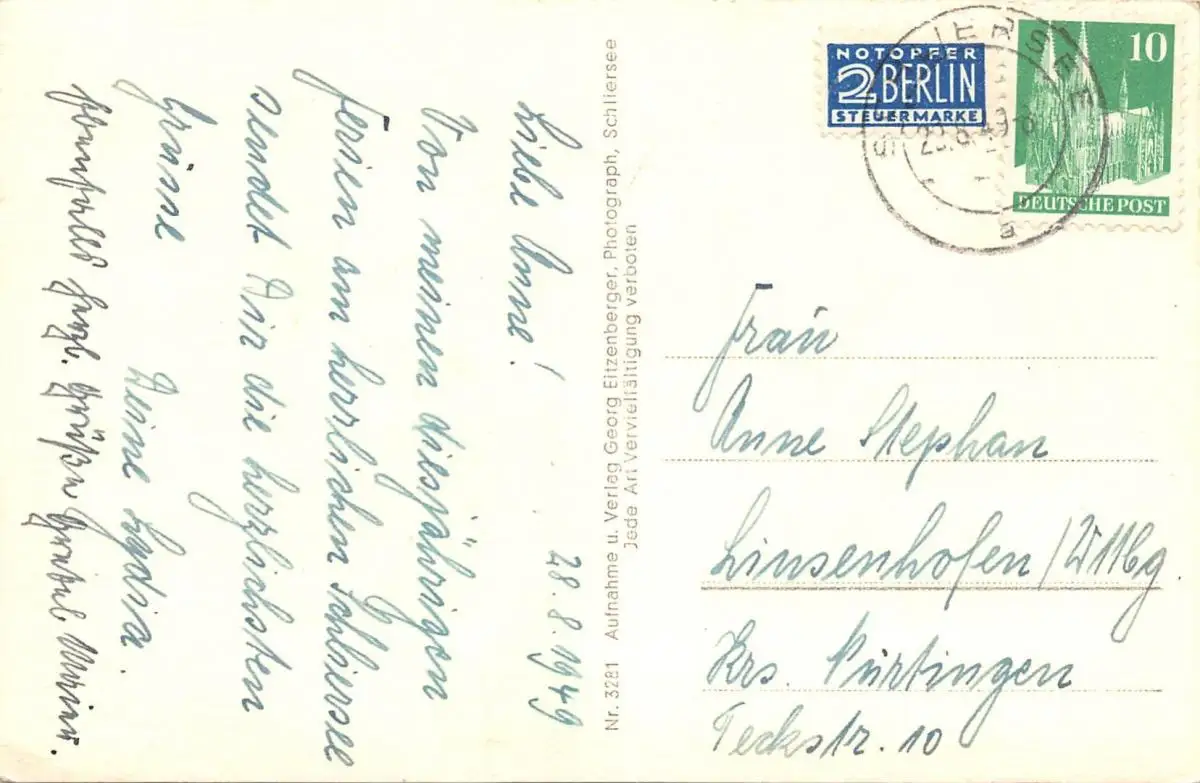 28.8.1949
Liebe Anne!
Von meinen diesjährigen
Ferien am herrlichen Schliersee
sendet Dir die herzlichsten
Grüsse
Deine Lydia.
Ebenfalls herzl. Grüße
Nr. 3281 Aufnahme u. Verlag Georg Eitzenberger, Photograph, Schliersee
Jede Art Vervielfältigung verboten
NOTOPFER
2 BERLIN
STEUERMARKE
10
DEUTSCHE POST
SCHLIERSEE
a
Frau
Anne Stephan
Linsenhofen/Württbg
Krs. Nürtingen
Teckstr. 10